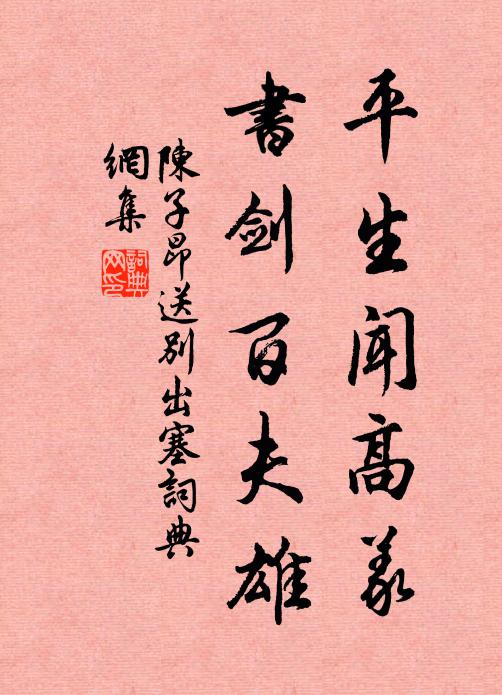 平生聞高義
書劍百夫雄
陳子昂送别出塞詞典
網集
詞典
网印